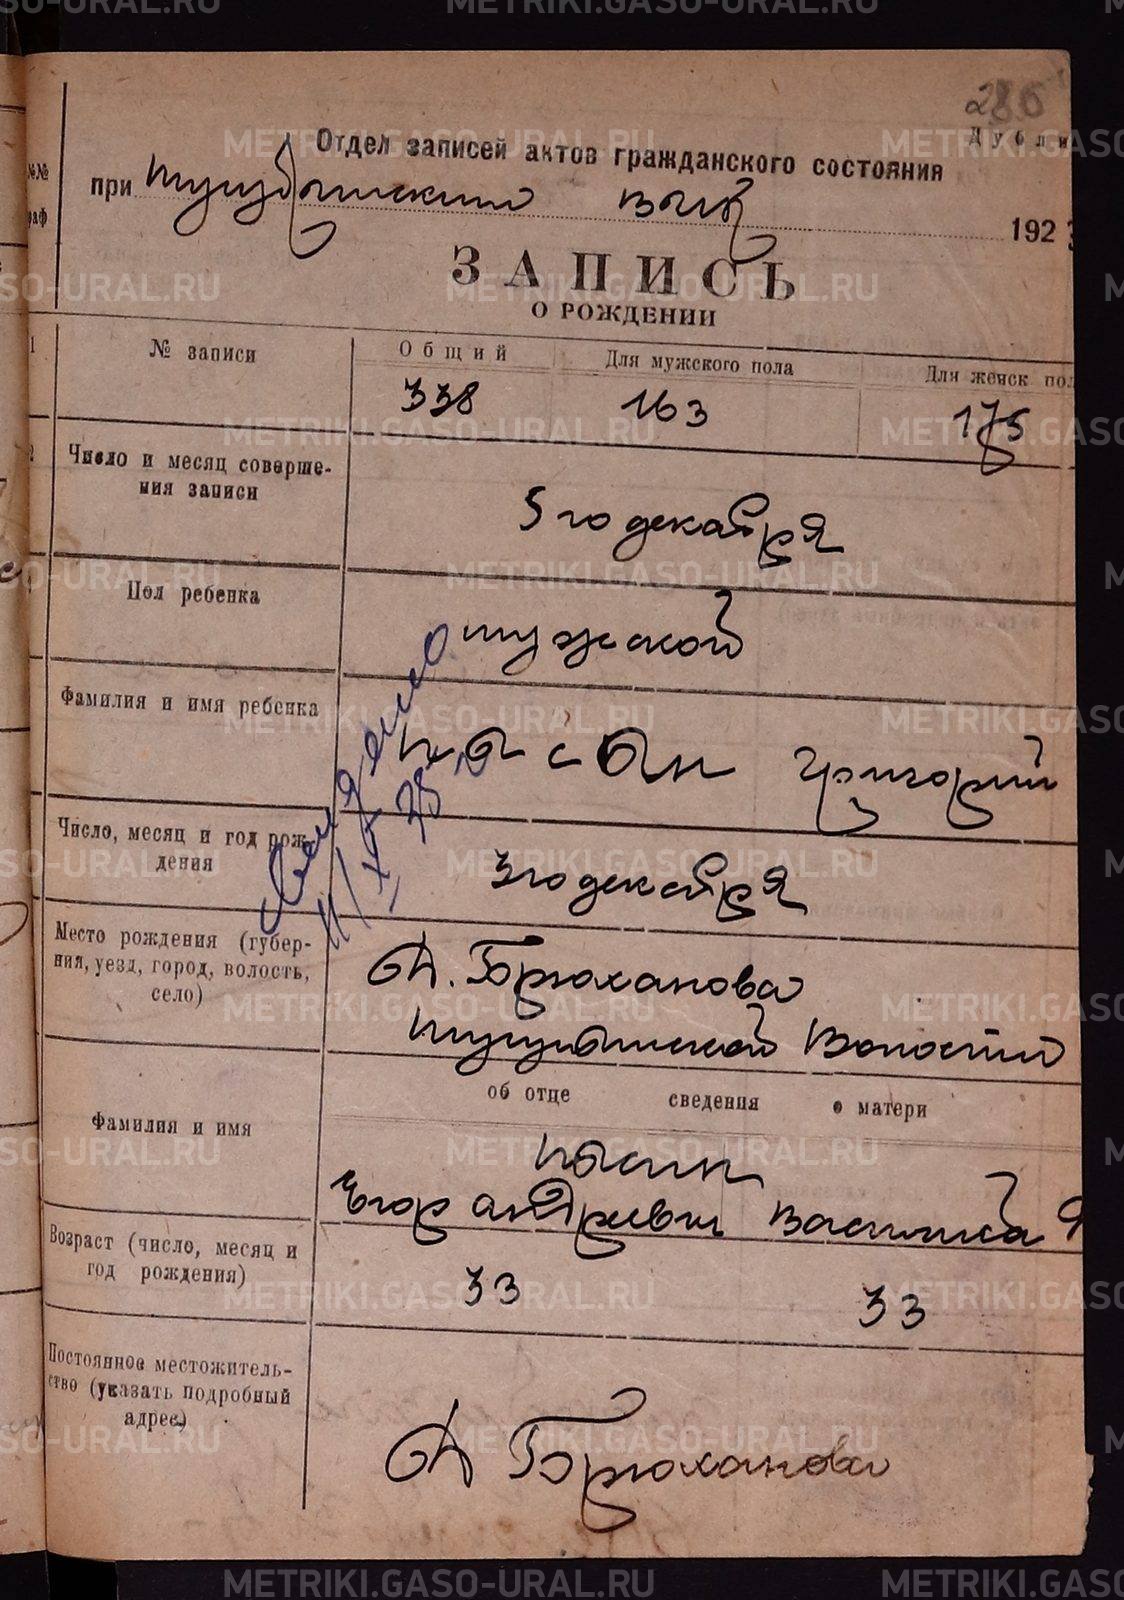 286
Дубли
Отдел записей актов гражданского состояния
при
1923
ЗАПИСЬ
О РОЖДЕНИИ
№№
раф
1
№ записи
Общий
Для мужского пола
Для женск пол
338
163
175
2
Число и месяц соверше-
ния записи
5го декабря
Пол ребенка
мужской
Фамилия и имя ребенка
Григорий
Число, месяц и год рож-
дения
3го декабря
11/XI 75
Место рождения (губер-
ния, уезд, город, волость,
село)
Д. Брюханова
Волости
об отце
сведения
о матери
Фамилия и имя
Егор Андреевич Василиса Я
Возраст (число, месяц и
год рождения)
33
33
Постоянное местожитель-
ство (указать подробный
адрес)
Д Брюханова
METRIKI.GASO-URAL.RU